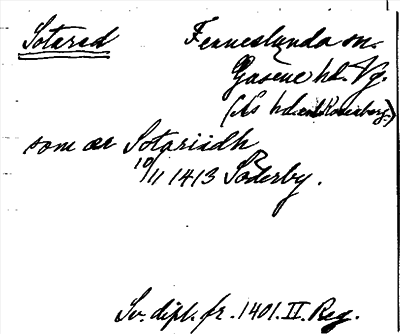 Sotared
Fenneslunda sn.
Gäsene hd. Vg.
(Ås hd. enl. Rosenberg.)
som ær Sotariidh
10/11 1413 Söderby.
Sv. dipl. fr. 1401. II. Reg.